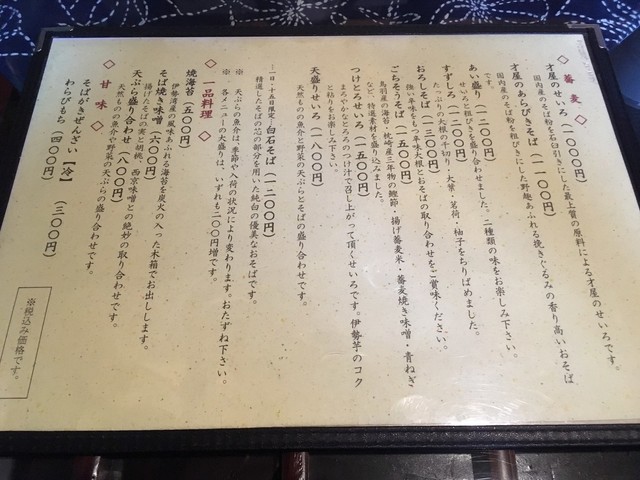 ◇ 蕎麦 ◇
才屋のせいろ(一〇〇〇円)
国内産のそば粉を石臼引きにした最上質の原料による才屋のせいろです。
才屋のあらびきそば(一一〇〇円)
国内産のそば粉を粗びきにした野趣あふれる挽きぐるみの香り高いおそば
です。
あい盛り(一二〇〇円)
せいろと粗びきを盛り合わせました。二種類の味をお楽しみ下さい。
すずしろ(一二〇〇円)
たっぷりの大根の千切り・大葉・茗荷・柚子をちりばめました。
おろしそば(一三〇〇円)
強い辛味をもつ辛味大根とおそばの取り合わせをご賞味ください。
ごちそうそば(一五〇〇円)
鳥羽産の海苔、枕崎産三年物の鰹節・揚げ蕎麦米・蕎麦焼き味噌・青ねぎ
など、特選素材を盛り込みました。
つけとろせいろ(一五〇〇円)
まろやかなとろろのつけ汁で召し上がって頂くせいろです。伊勢芋のコク
と粘りをお楽しみ下さい。
天盛りせいろ(一八〇〇円)
天然ものの魚介と野菜の天ぷらとそばの盛り合わせです。
―一日・十五日限定― 白石そば(一二〇〇円)
精選したそばの芯の部分を用いた純白の優美なおそばです。
※ 天ぷらの魚介は、季節や入荷の状況により変わります。おたずね下さい。
※ 各メニューの大盛りは、いずれも二〇〇円増です。
◇ 一品料理 ◇
焼海苔(五〇〇円)
伊勢湾産の風味あふれる海苔を炭火の入った木箱でお出しします。
そば焼き味噌(六〇〇円)
揚げたそばの実と胡桃、西京味噌との絶妙の取り合わせです。
天ぷら盛り合わせ(一八〇〇円)
天然ものの魚介や野菜の天ぷらの盛り合わせです。
◇ 甘味 ◇
そばがきぜんざい【冷】(三〇〇円)
わらびもち(四〇〇円)
※税込み価格です。